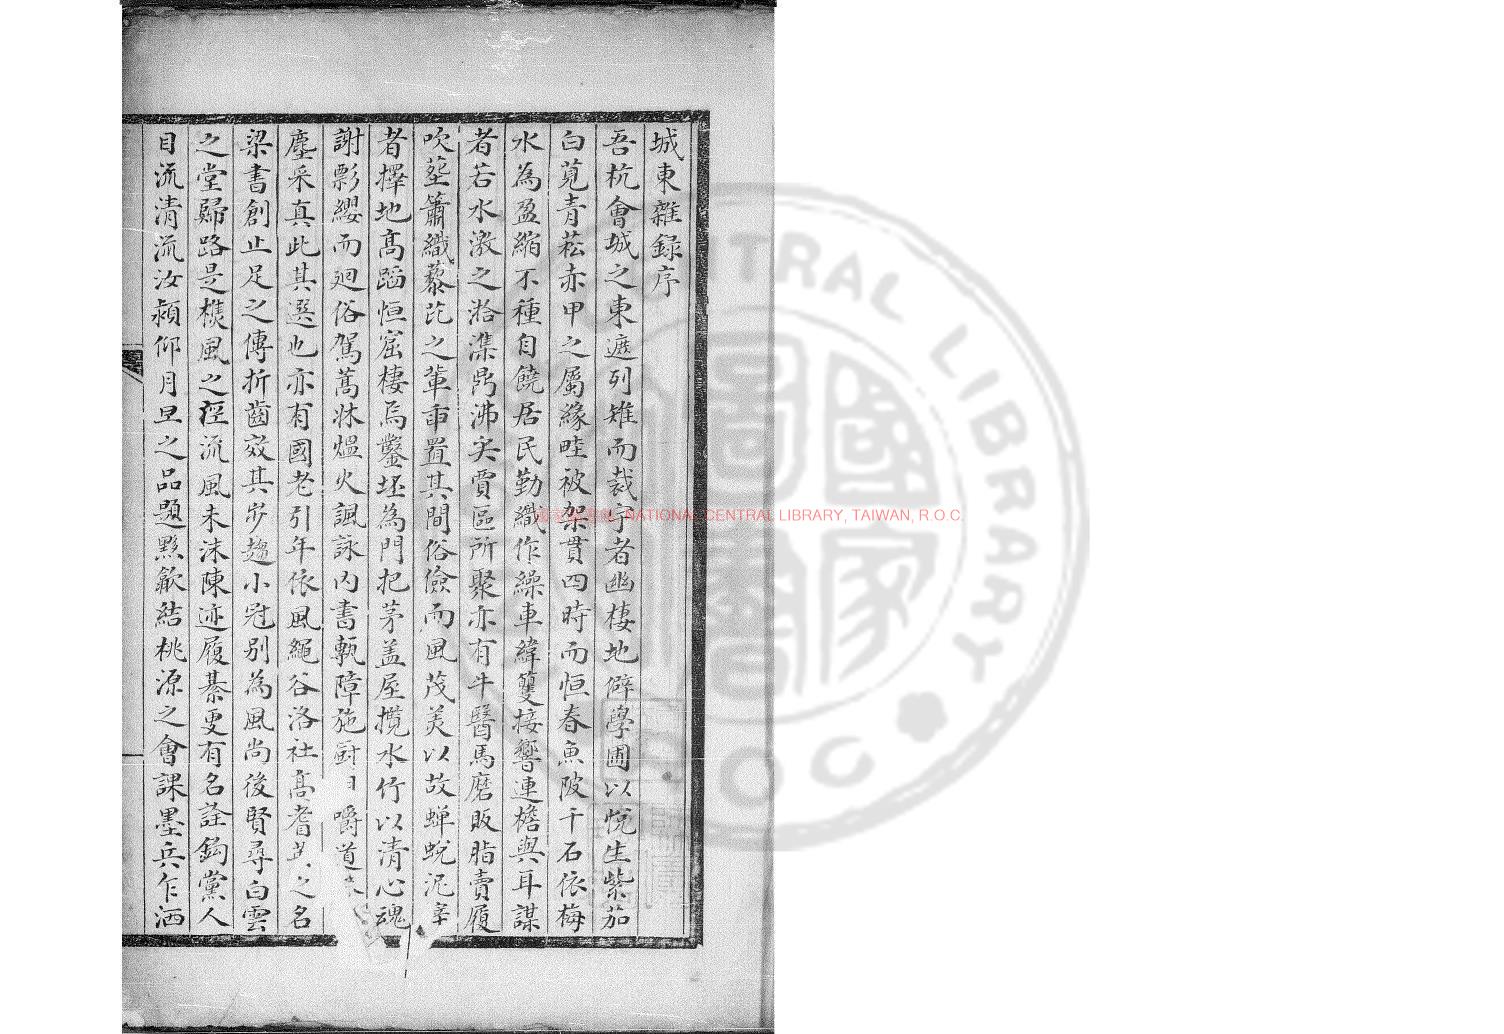 城東雜録序
吾杭會城之東遮列雉而裁宇者幽棲地僻學圃以悅生紫茄
白莧青菘赤甲之屬緣畦被架貫四時而恒春魚陂千石依梅
水為盈縮不種自饒居民勤織作繰車緯籆接響連檐與耳謀
者若水激之澁灢鼎沸矣賈區所聚亦有牛醫馬磨販脂賣履
吹塋簫織藜芘之軰雨置其間俗儉而風茂美以故蟬蛻泥滓
者擇地高蹈恒窟棲焉鑿坯為門把茅盖屋攬水竹以清心魂
謝影纓而廻俗駕蒿牀煴火諷詠內書執障施嚼道
塵采真此其選也亦有國老引年依風繩谷洛社高耆英之名
梁書創止足之傳折齒效其步趨小冠別為風尚後賢尋白雲
之堂歸路是樵風之徑流風未沬陳迹履綦更有名詮鈎黨人
目流清流汝潁仰月旦之品題黟歙結桃源之會課墨兵乍洒
NATIONAL CENTRAL LIBRARY, TAIWAN, R.O.C.
CENTRAL LIBRARY
R.O.C